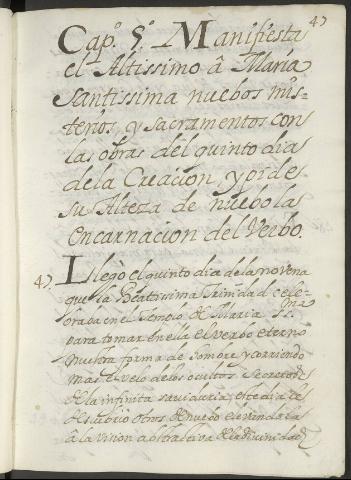 47
Capº. 5º. Manifiesta
el Altissimo â Maria
Santissima nuebos mis-
terios, y sacramentos con
las obras del quinto dia
dela Creacion, y pide
su Alteza de nuebo la
encarnacion del Verbo.
47. Llegò el quinto dia dela novena
que la Beatissima Trinidad cele-
braba en el Templo de Maria SSma
para tomar en ella el verbo eterno
nuestra forma de hombre y corriendo
mas el velo delos ocultos secretos
de la infinita sauiduria, este dia le
descubrio otros de nuebo elevandola
â la vision abstractiva de la divinidad